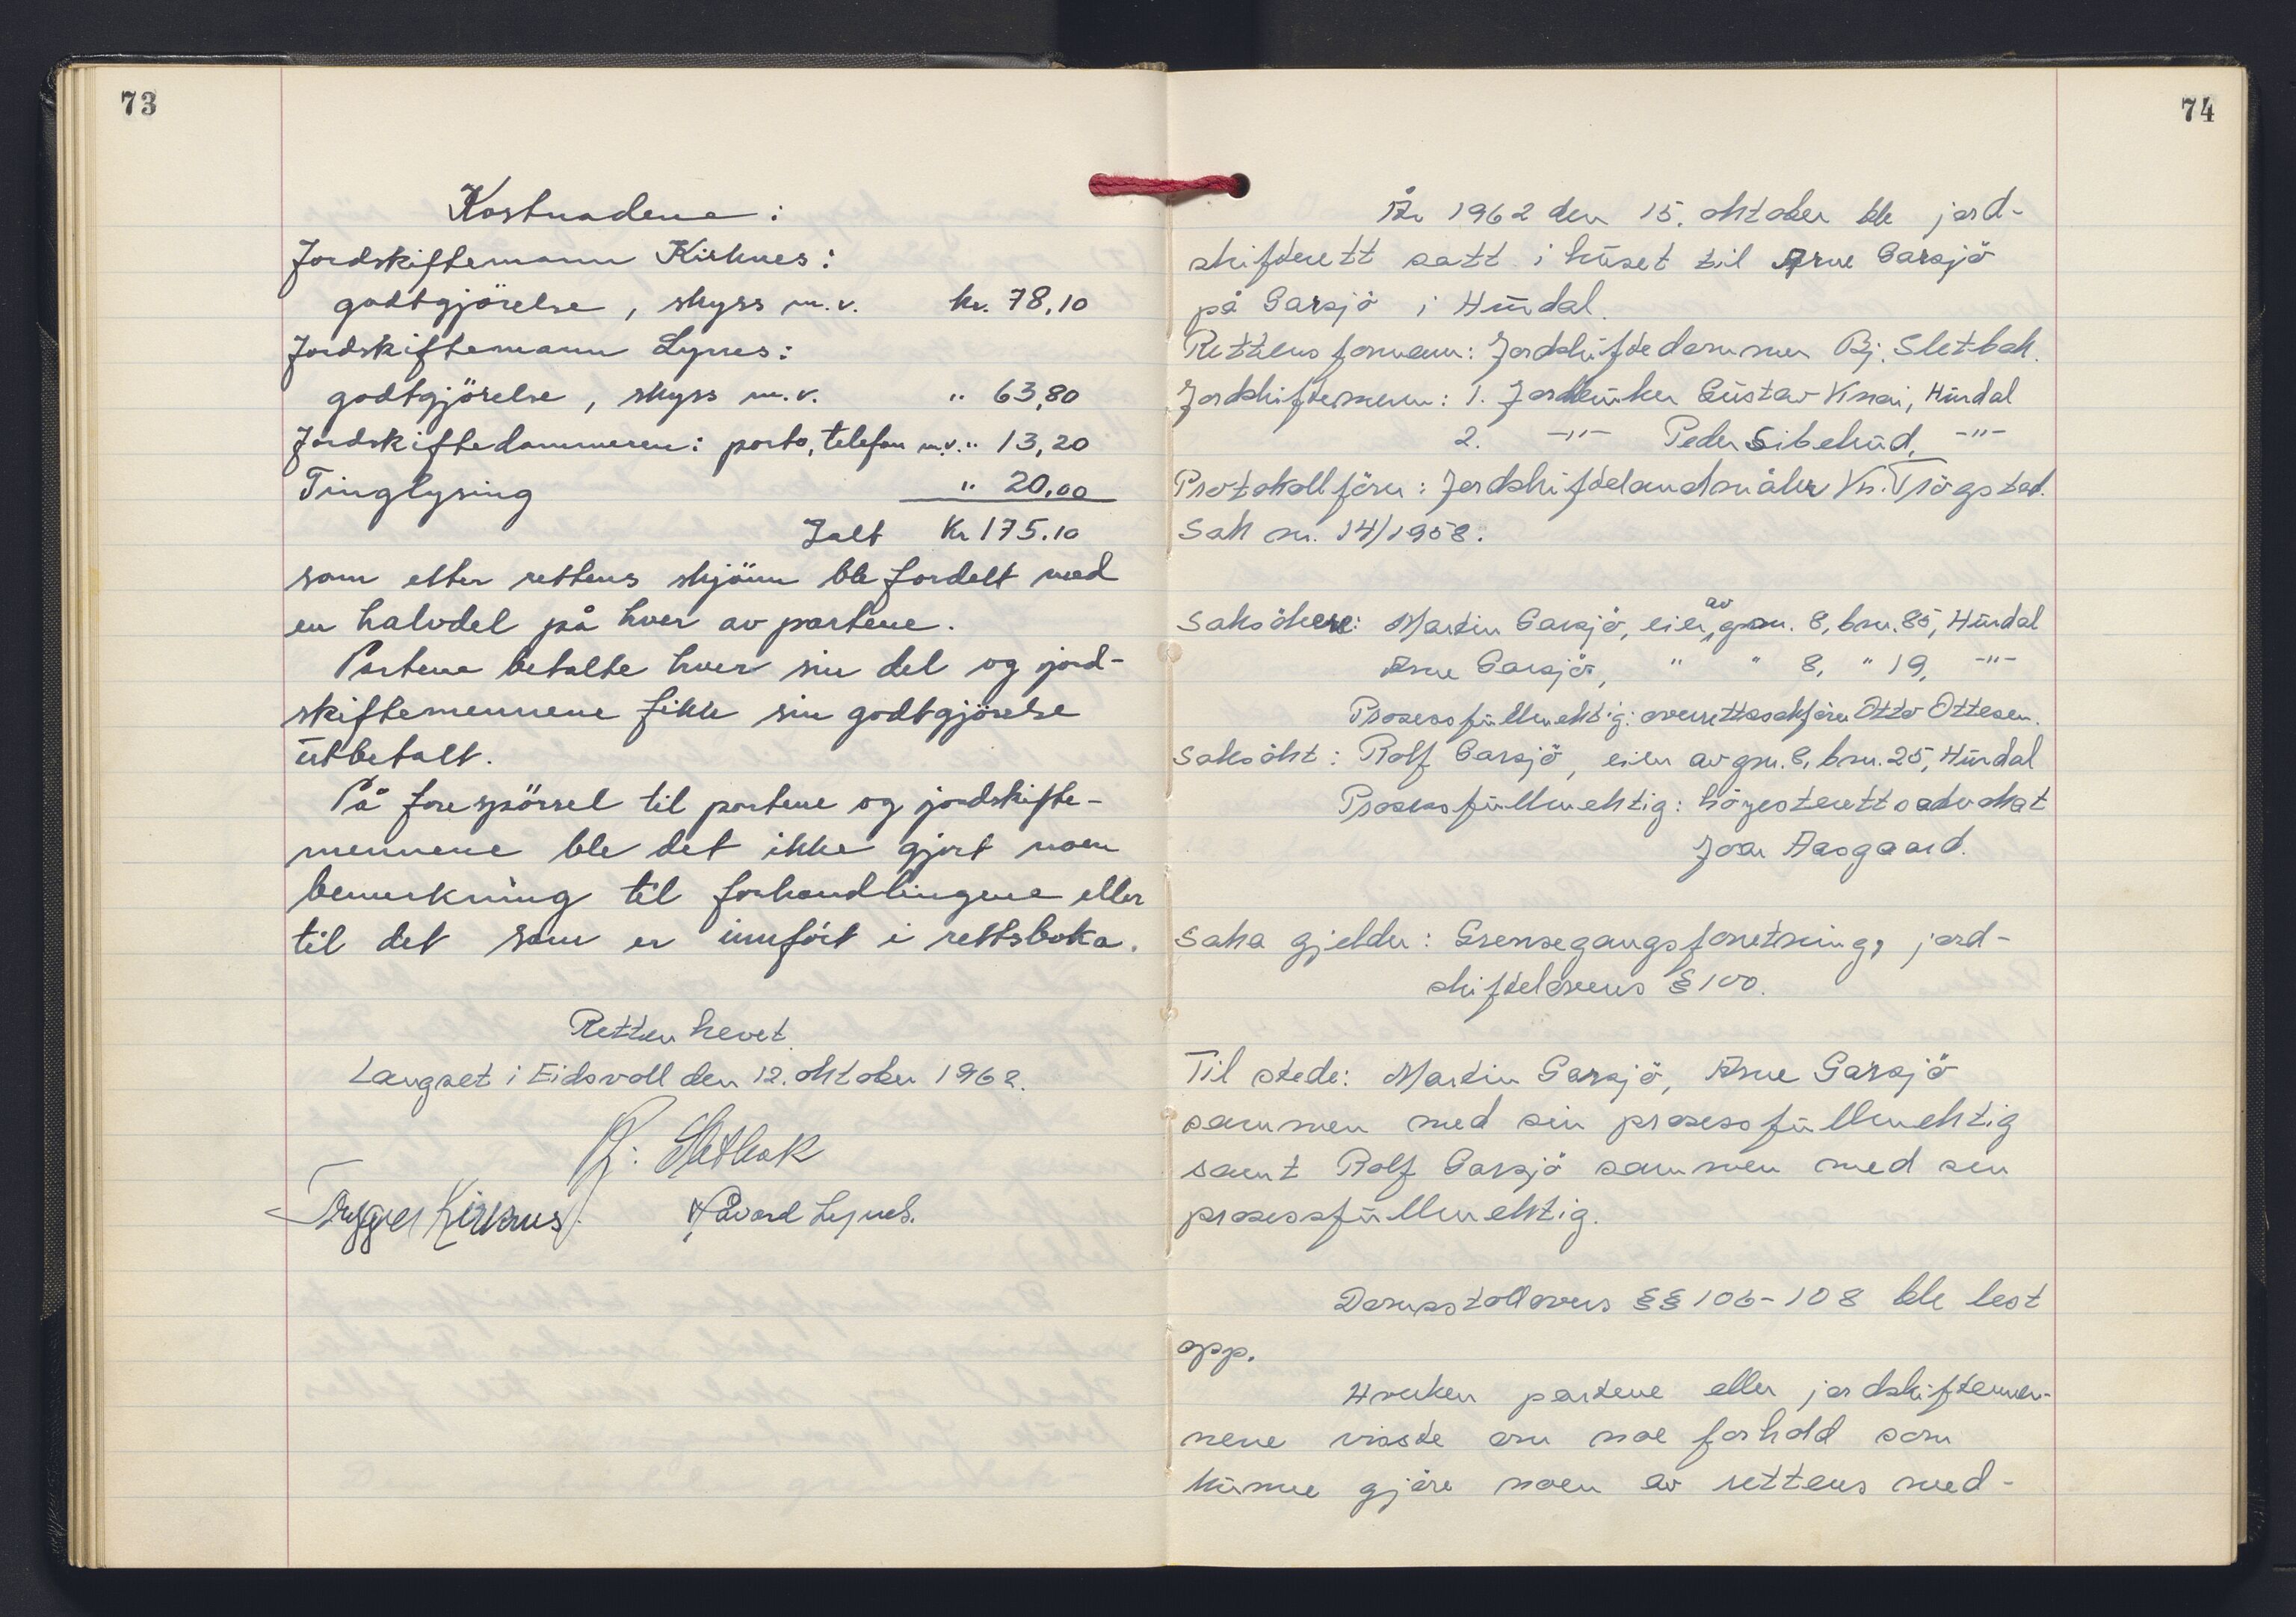 73
Kostnadene:
Jordskiftemann Kirknes:
godtgjörelse, skyss m.v. kr. 78,10
Jordskiftemann Lynes:
godtgjörelse, skyss m.v. " 63,80
Jordskiftedommeren: porto, telefon m.v. " 13,20
Tinglysing " 20,00
Ialt Kr 175.10
som etter rettens skjönn ble fordelt med
en halvdel på hver av partene.
Partene betalte hver sin del og jord-
skiftemennene fikk sin godtgjörelse
utbetalt.
På forespörsel til partene og jordskifte-
mennene ble det ikke gjort noen
bemerkning til forhandlingene eller
til det som er innfört i rettsboka.
Retten hevet.
Langset i Eidsvoll den 12. oktober 1962.
Bj. Sletbak
Trygve Kirknes. Håvard Lynes.
74
År 1962 den 15. oktober ble jord-
skifterett satt i huset til Arne Garsjö
på Garsjö i Hurdal.
Rettens formann: Jordskiftedommer Bj. Sletbak.
Jordskiftemenn: 1. Jordbruker Gustav Knai, Hurdal
2. -"- Peder Sibelrud, -"-
Protokollförer: Jordskiftelandmåler Kn. Trögstad.
Sak nr. 14/1958.
Saksökere: Martin Garsjö, eier av gnr. 8, bnr. 85, Hurdal
Arne Garsjö, " " 8, " 19, -"-
Prosessfullmektig: overrettssakförer Otto Ottesen.
Saksökt: Rolf Garsjö, eier av gnr. 8, bnr. 25, Hurdal
Prosessfullmektig: höyesterettsadvokat
Joar Aasgaard.
Saka gjelder: Grensegangsforretning, jord-
skiftelovens § 100.
Til stede: Martin Garsjö, Arne Garsjö
sammen med sin prosessfullmektig
samt Rolf Garsjö sammen med sin
prosessfullmektig.
Domstollovens §§ 106-108 ble lest
opp.
Hverken partene eller jordskiftemen-
nene visste om noe forhold som
kunne gjöre noen av rettens med-